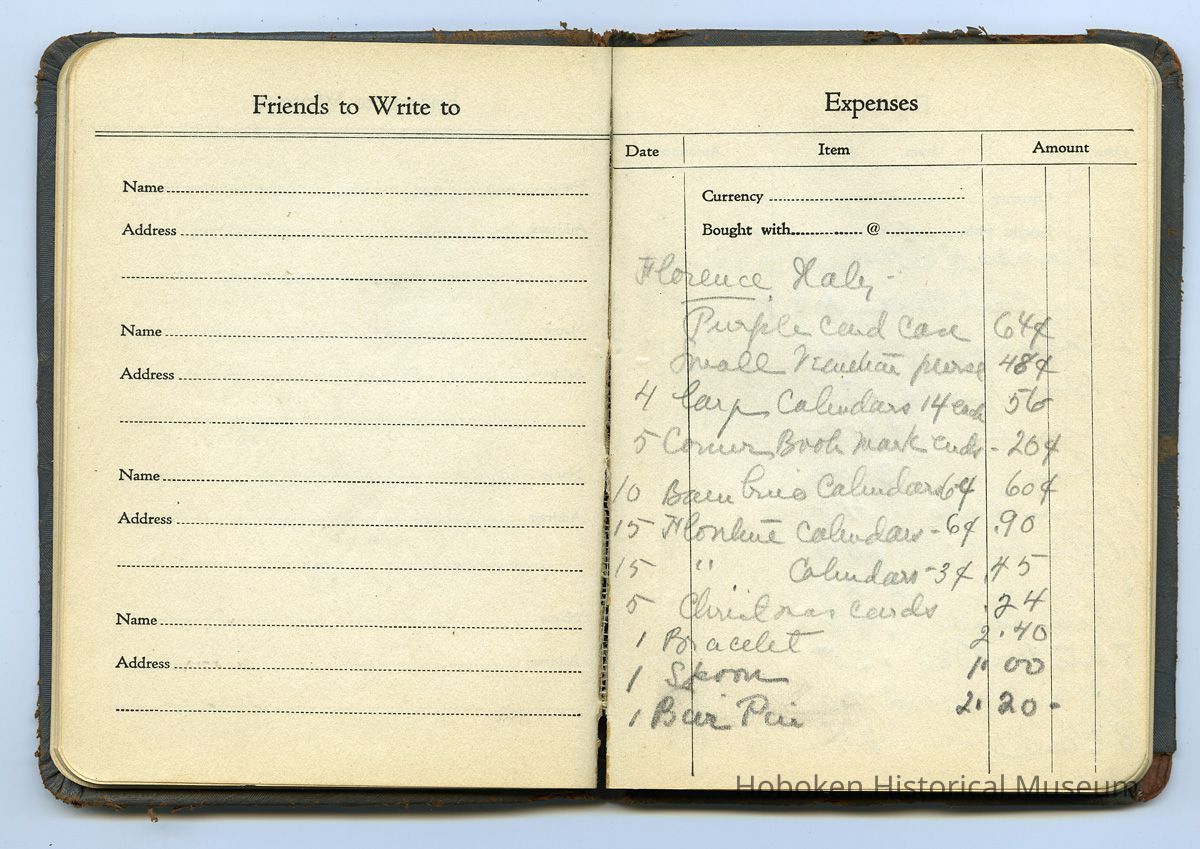 Friends to Write to
Name
Address
Name
Address
Name
Address
Name
Address
Expenses
Date Item Amount
Currency
Bought with @
Florence Italy -
Purple card case 64¢
Small Venetian purse 48¢
4 large Calendars 14 each 56
5 Corner Book mark ends - 20¢
10 Calendars 6¢ 60¢
15 Florentine Calendars - 6¢ .90
15 " Calendars - 3¢ .45
5 Christmas cards .24
1 Bracelet 2.40
1 Spoon 1.00
1 Bar Pin 2.20 -
Hoboken Historical Museum